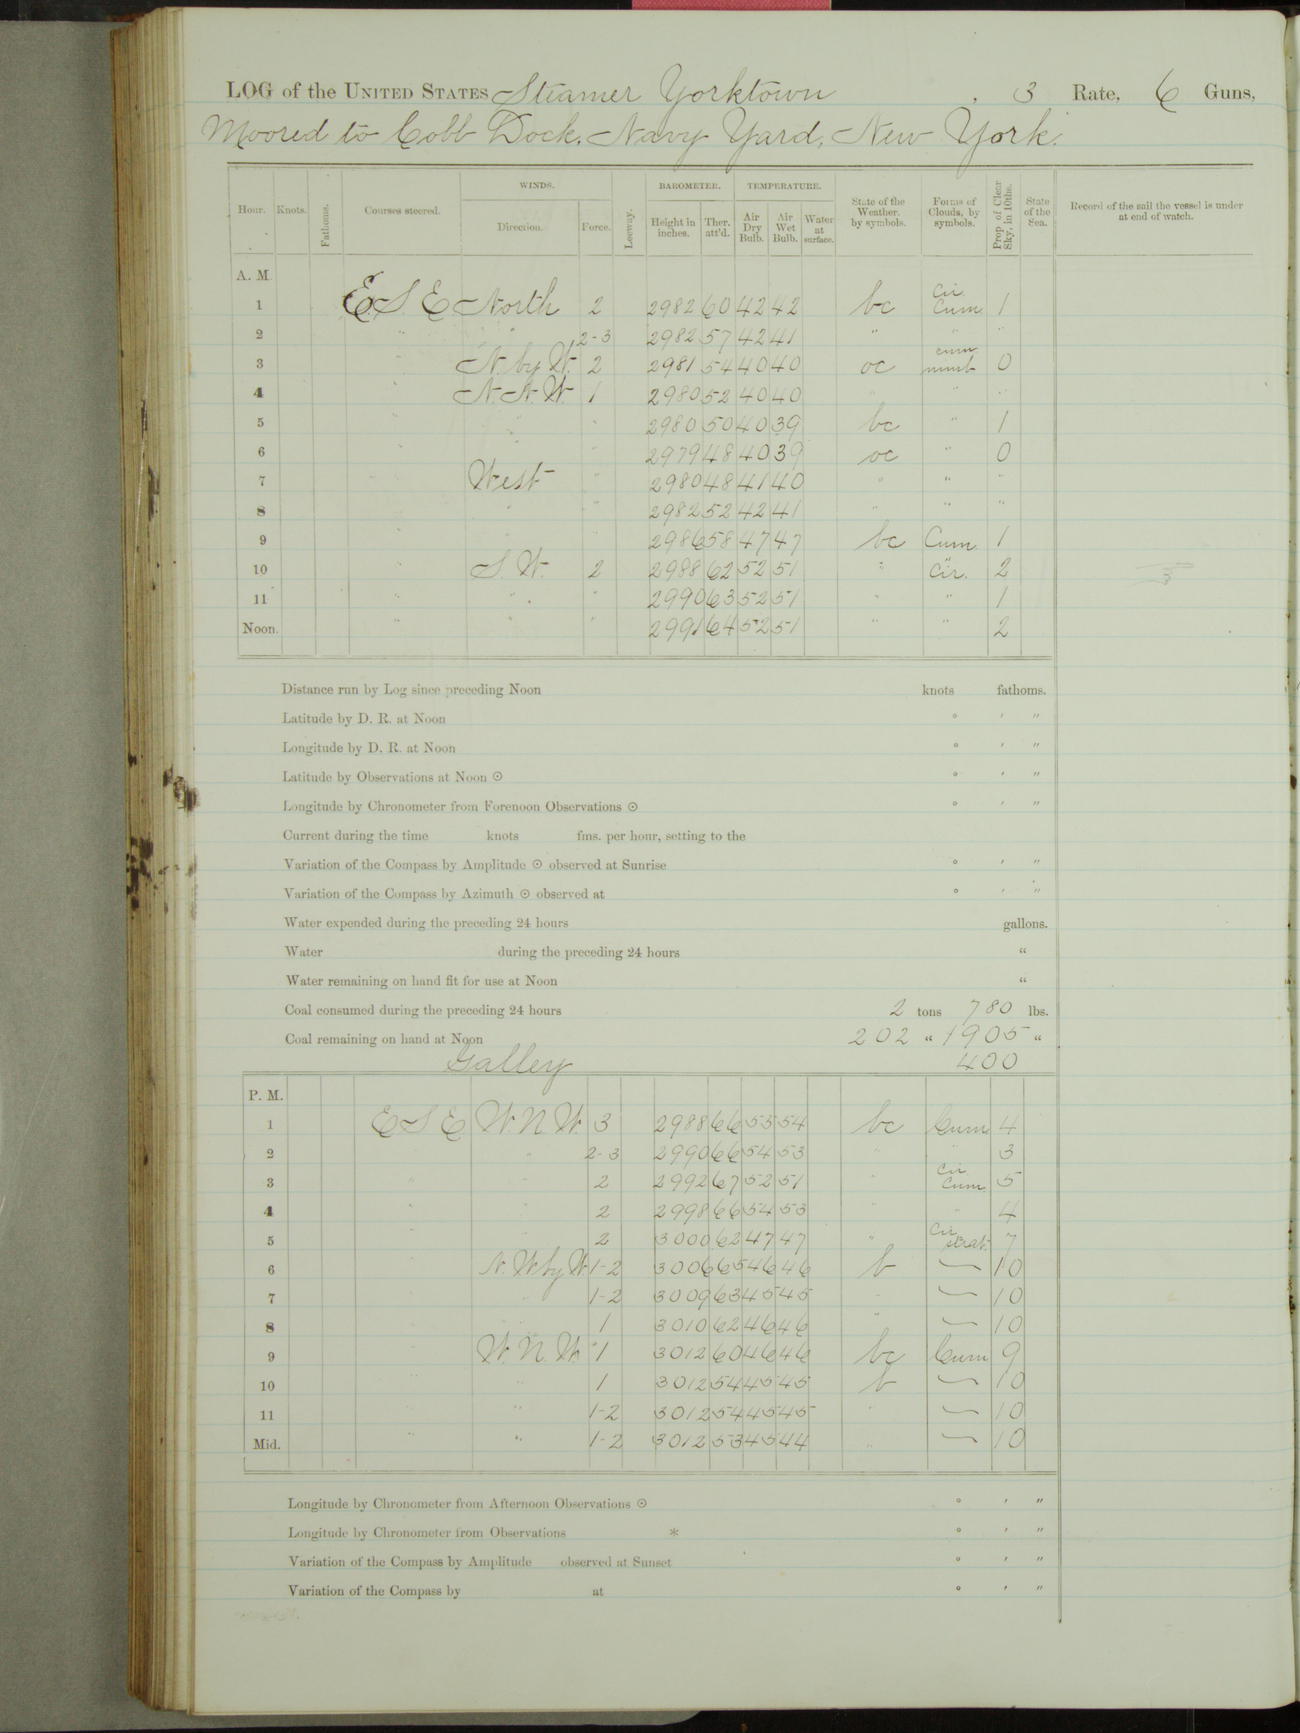 LOG of the UNITED STATES Steamer Yorktown, 3 Rate, 6 Guns,
Moored to Cobb Dock, Navy Yard, New York.
WINDS. BAROMETER. TEMPERATURE.
Hour. Knots. Fathoms. Courses steered. Direction. Force. Leeway. Height in inches. Ther. att'd. Air Dry Bulb. Air Wet Bulb. Water at surface. State of the Weather, by symbols. Forms of Clouds, by symbols. Prop. of Clear Sky, in 10ths. State of the Sea. Record of the sail the vessel is under at end of watch.
A. M.
1 E.S.E North 2 2982 60 42 42 bc Cir. Cum 1
2 " " 2-3 2982 57 42 41 " " "
3 N. by W. 2 2981 54 40 40 oc cum nimb 0
4 N.N.W. 1 2980 52 40 40 " " "
5 " " " 2980 50 40 39 bc " 1
6 " " " 2979 48 40 39 oc " 0
7 West " 2980 48 41 40 " " "
8 " " " 2982 52 42 41 " " "
9 " " " 2986 58 47 47 bc Cum. 1
10 S.W. 2 2988 62 52 51 " Cir. 2
11 " " " 2990 63 52 51 " " 1
Noon. " " " 2991 64 52 51 " " 2
Distance run by Log since preceding Noon knots fathoms.
Latitude by D. R. at Noon ° ′ ″
Longitude by D. R. at Noon ° ′ ″
Latitude by Observations at Noon ☉ ° ′ ″
Longitude by Chronometer from Forenoon Observations ☉ ° ′ ″
Current during the time knots fms. per hour, setting to the
Variation of the Compass by Amplitude ☉ observed at Sunrise ° ′ ″
Variation of the Compass by Azimuth ☉ observed at ° ′ ″
Water expended during the preceding 24 hours gallons.
Water during the preceding 24 hours “
Water remaining on hand fit for use at Noon “
Coal consumed during the preceding 24 hours 2 tons 780 lbs.
Coal remaining on hand at Noon 202 “ 1905 “
Galley 400
P. M.
1 E S E W.N.W. 3 2988 66 55 54 bc Cum 4
2 " 2-3 2990 66 54 53 " " 3
3 " " 2 2992 67 52 51 " Cir Cum 5
4 " " 2 2998 66 54 53 " " 4
5 " " 2 3000 62 47 47 " Cir strat. 7
6 N.W. by W. 1-2 3006 65 46 46 b — 10
7 " 1-2 3009 63 45 45 " — 10
8 " 1 3010 62 46 46 " — 10
9 W.N.W. 1 3012 60 46 46 bc Cum 9
10 " 1 3012 54 45 45 b — 10
11 " " 1-2 3012 54 45 45 " — 10
Mid. " " 1-2 3012 53 45 44 " — 10
Longitude by Chronometer from Afternoon Observations ☉ ° ′ ″
Longitude by Chronometer from Observations * ° ′ ″
Variation of the Compass by Amplitude observed at Sunset ° ′ ″
Variation of the Compass by at ° ′ ″